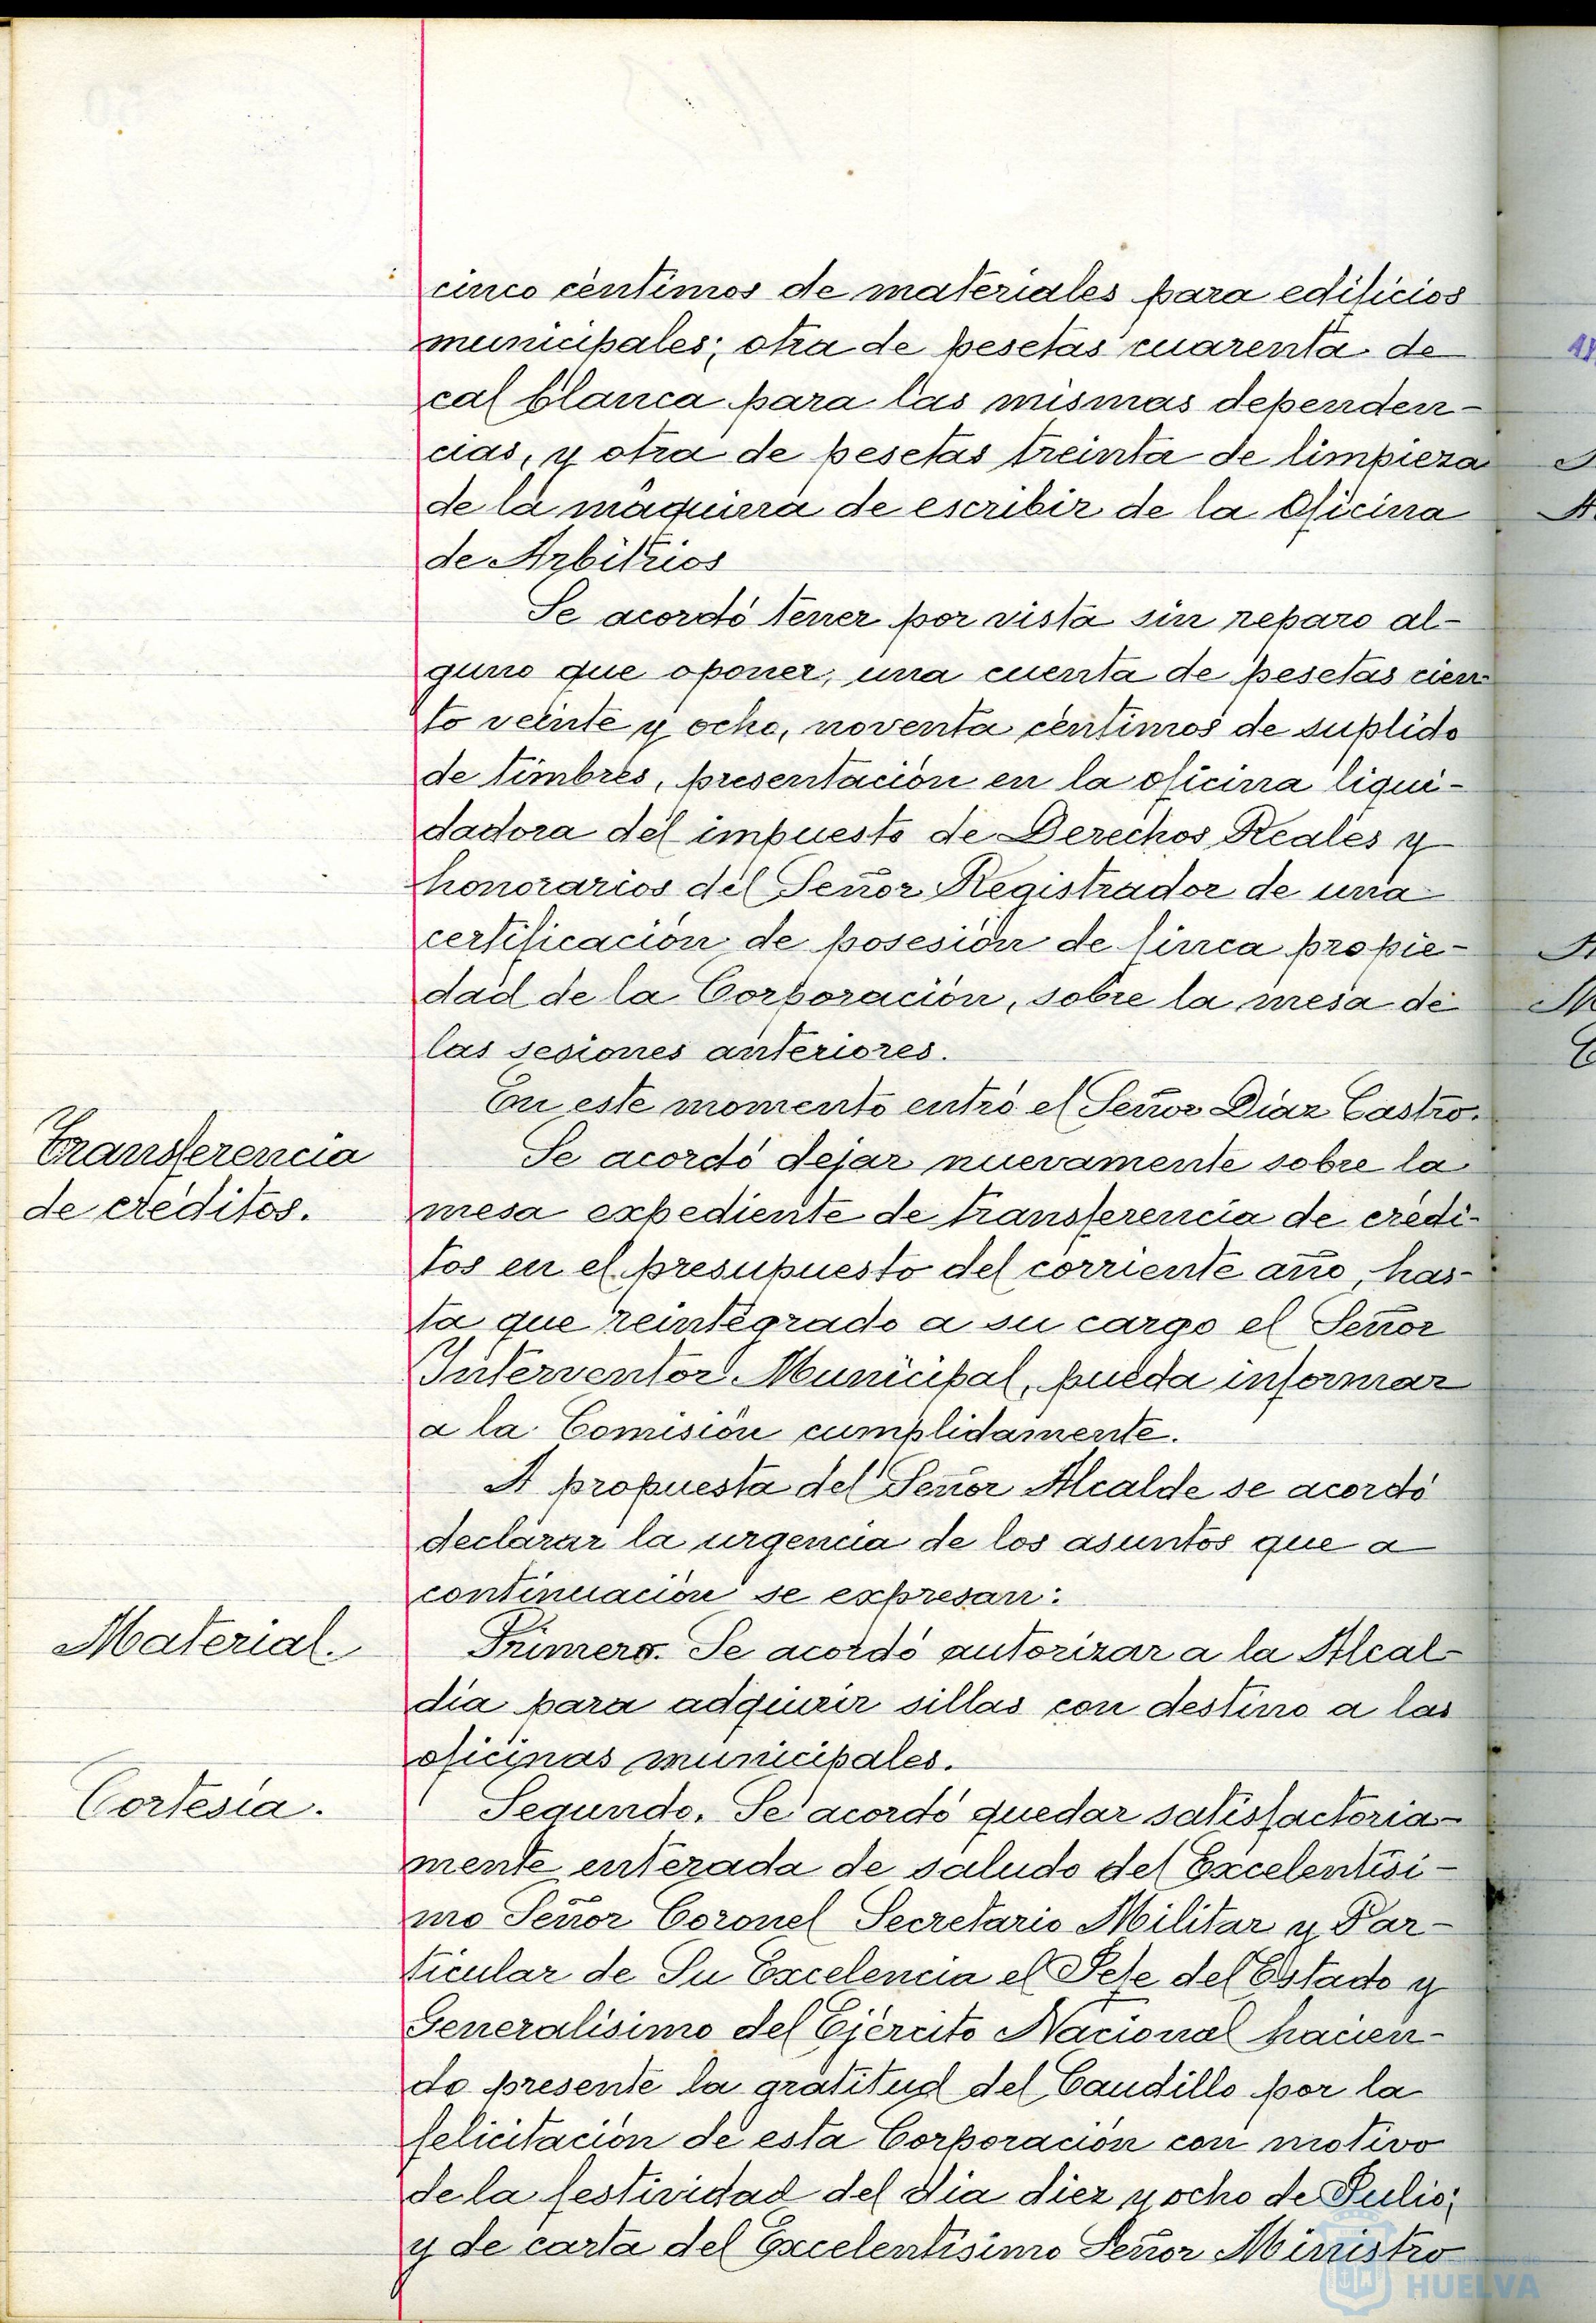 cinco céntimos de materiales para edificios
municipales; otra de pesetas cuarenta de
cal blanca para las mismas dependen-
cias, y otra de pesetas treinta de limpieza
de la máquina de escribir de la Oficina
de Arbitrios
Se acordó tener por vista sin reparo al-
guno que oponer, una cuenta de pesetas cien
to veinte y ocho, noventa céntimos de suplido
de timbres, presentación en la oficina liqui-
dadora del impuesto de Derechos Reales y
honorarios del Señor Registrador de una
certificación de posesión de finca propie-
dad de la Corporación, sobre la mesa de
las sesiones anteriores.
En este momento entró el Señor Díaz Castro.
Transferencia
de créditos.
Se acordó dejar nuevamente sobre la
mesa expediente de transferencia de crédi-
tos en el presupuesto del corriente año, has-
ta que reintegrado a su cargo el Señor
Interventor Municipal, pueda informar
a la Comisión cumplidamente.
A propuesta del Señor Alcalde se acordó
declarar la urgencia de los asuntos que a
continuación se expresan:
Material.
Primero. Se acordó autorizar a la Alcal-
día para adquirir sillas con destino a las
oficinas municipales.
Cortesía.
Segundo. Se acordó quedar satisfactoria-
mente enterada de saludo del Excelentísi-
mo Señor Coronel Secretario Militar y Par-
ticular de Su Excelencia el Jefe del Estado y
Generalísimo del Ejército Nacional hacien-
do presente la gratitud del Caudillo por la
felicitación de esta Corporación con motivo
de la festividad del día diez y ocho de Julio;
y de carta del Excelentísimo Señor Ministro
HUELVA